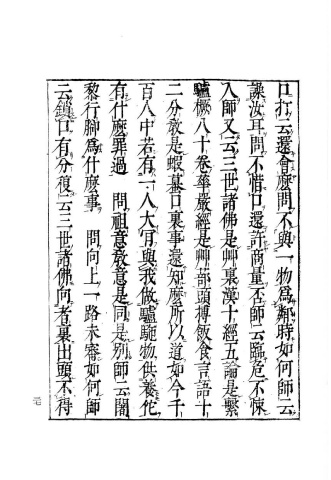 口打云還會麼問不與一物爲鄰時如何師云
謾汝耳問不惜口還許商量否師云臨危不悚
入師又云三世諸佛是艸裏漢十經五論是繫
驢橛八十卷華嚴經是艸部頭搏飯食言語十
二分敎是蝦蟇口裏事還知麼所以道如今千
百人中若有一人大肎與我做驢駞物供養佗
有什麼罪過　問祖意敎意是同是別師云闍
黎行腳爲什麼事　問向上一路未審如何師
云鎖口有分復云三世諸佛向者裏出頭不得